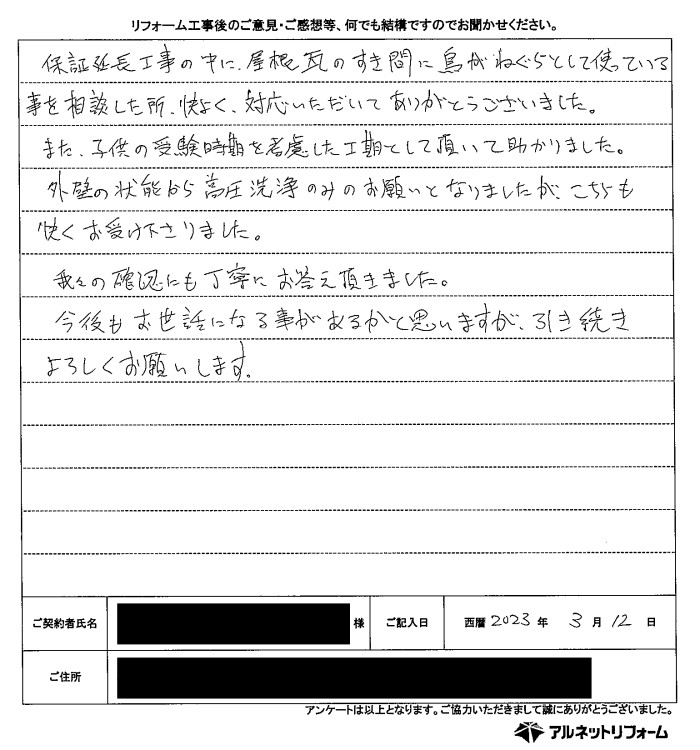 リフォーム工事後のご意見・ご感想等、何でも結構ですのでお聞かせください。
保証延長工事の中に、屋根瓦のすき間に鳥がねぐらとして使っている
事を相談した所、快よく、対応いただいてありがとうございました。
また、子供の受験時期を考慮した工期として頂いて助かりました。
外壁の状態から高圧洗浄のみのお願いとなりましたが、こちらも
快くお受け下さりました。
我々の確認にも丁寧にお答え頂きました。
今後もお世話になる事があるかと思いますが、引き続き
よろしくお願いします。
ご契約者氏名 様 ご記入日 西暦 2023 年 3 月 12 日
ご住所
アンケートは以上となります。ご協力いただきまして誠にありがとうございました。
アルネットリフォーム